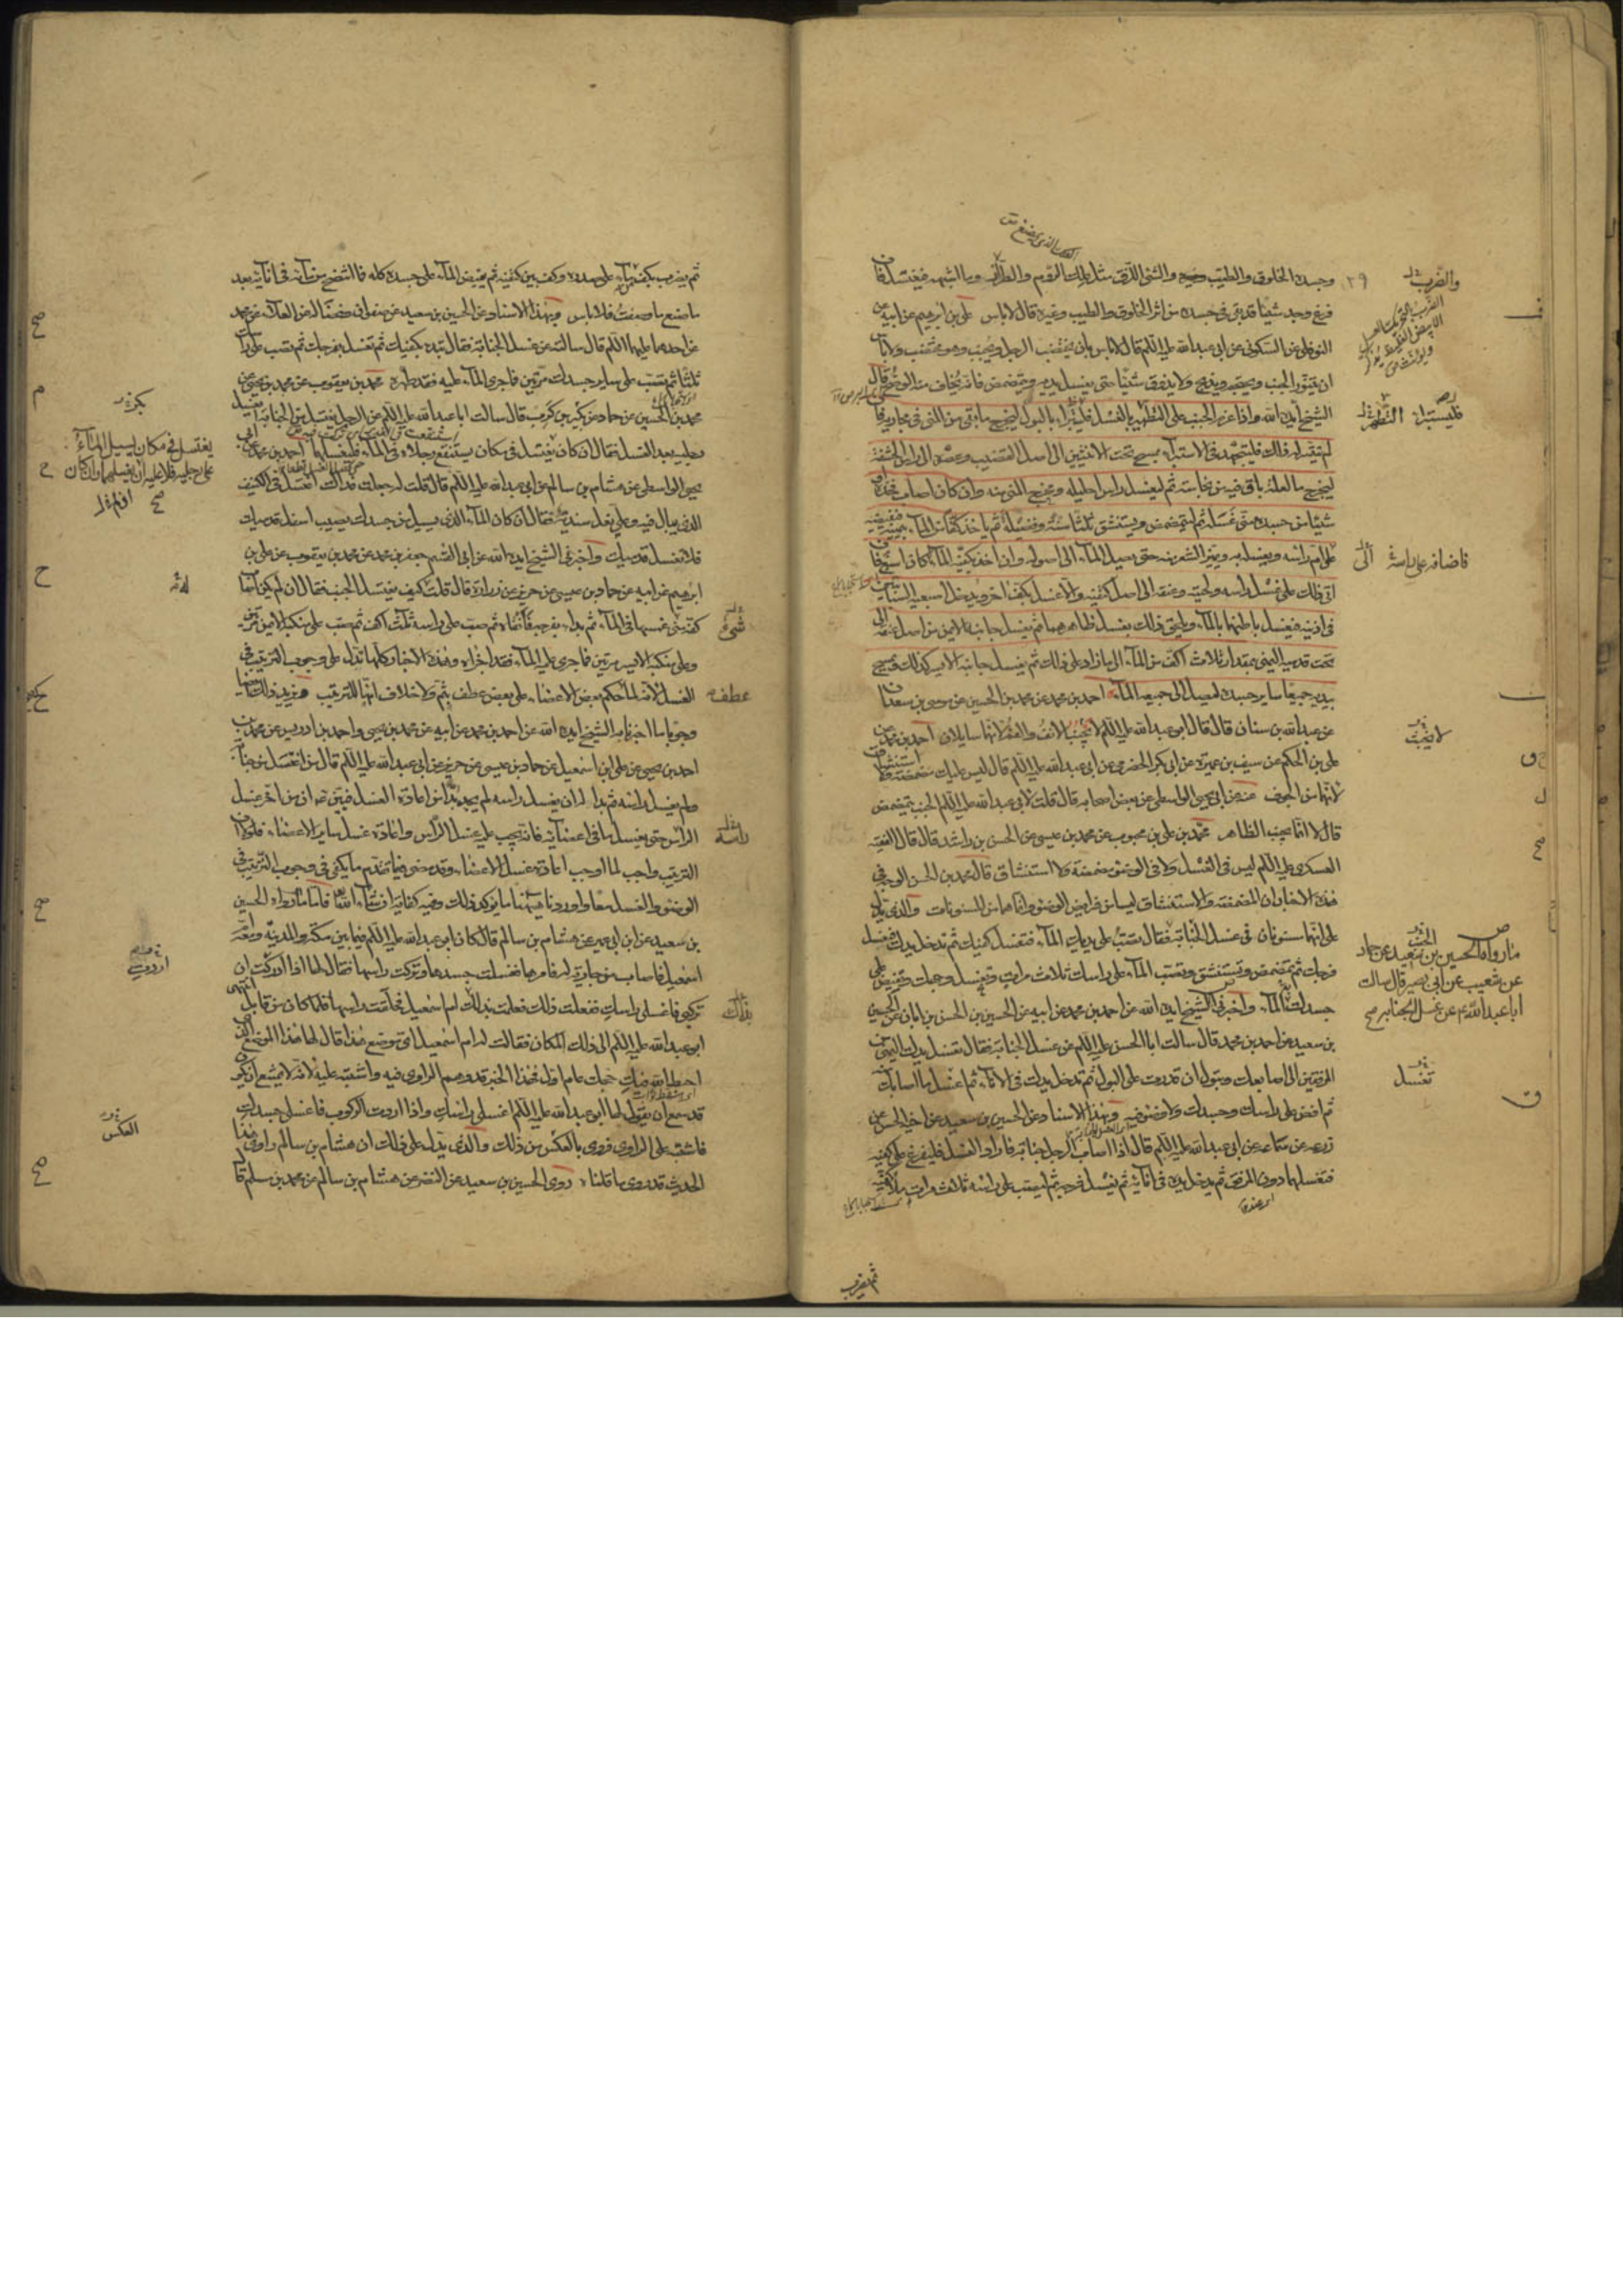 وجسده الخلوق والطيب والشئ اللزق مثل علك الروم والطرار وما اشبهه فيغتسل فاذا
فرغ وجد شيئا قد بقى فى جسده من اثر الخلوق والطيب وغيره قال لا باس على بن ابرهيم عن ابيه عن
النوفلى عن السكونى عن ابى عبد الله عليه السلم قال لا باس بان يختضب الرجل ويجنب وهو مختضب ولا باس
ان يتنور الجنب ويحتجم ويذبح ولا يذوق شيئا حتى يغسل يديه ويتمضمض فانه يخاف منه الوضح قال
الشيخ ايده الله واذا عزم الجنب على التطهير بالغسل فليستبرأ بالبول ليخرج ما بقى من المنى فى مجاريه فان
لم يتيسر له ذلك فليجتهد فى الاستبراء بمسح تحت الانثيين الى اصل القضيب وعصره الى راس الحشفة
ليخرج ما لعله باق فيه من نجاسة ثم ليغسل راس احليله ومخرج المنى منه وان كان اصاب فخذه
شيئا من جسده منى غسله ثم ليتمضمض ويستنشق ثلثا سنة وفضيلة ثم ياخذ كفا من الماء بيمينه فيفيضه
على ام راسه ويغسله به ويميز الشعر منه حتى يصل الماء الى اصوله وان اخذ بكفيه الماء كان اسبغ فان
اتى ذلك على غسل راسه ولحيته وعنقه الى اصل كتفيه والا غسل بكف اخر ويدخل اصبعيه السبابتين
فى اذنيه فيغسل باطنهما بالماء ويلحق ذلك بغسل ظاهرهما ثم يغسل جانبه الايمن من اصل عنقه الى
تحت قدمه اليمنى بمقدار ثلاث اكف من الماء الى ما زاد على ذلك ثم يغسل جانبه الايسر كذلك ويمسح
بيديه جميعا ساير جسده ليصل الى جميعه الماء احمد بن محمد عن محمد بن الحسين عن موسى بن سعدان
عن عبد الله بن سنان قال قال ابو عبد الله عليه السلم لا يجنب الانف والفم لانهما سايلان احمد بن محمد عن
على بن الحكم عن سيف بن عميرة عن ابى بكر الحضرمى عن ابى عبد الله عليه السلم قال ليس عليك مضمضة ولا استنشاق
لانهما من الجوف عنه عن ابى يحيى الواسطى عن بعض اصحابه قال قلت لابى عبد الله عليه السلم الجنب يتمضمض
قال لا انما يجنب الظاهر محمد بن على بن محبوب عن محمد بن عيسى عن الحسن بن راشد قال قال الفقيه
العسكرى عليه السلم ليس فى الغسل ولا فى الوضوء مضمضة ولا استنشاق قال محمد بن الحسن الوجه فى
هذه الاخبار ان المضمضة والاستنشاق ليسا من فرايض الوضوء وانما هما من المسنونات والذى يدل
على انهما مسنونان فى غسل الجنابة فقال تصب على يديك الماء فتغسل كفيك ثم تدخل يدك فتغسل
فرجك ثم تتمضمض وتستنشق وتصب الماء على راسك ثلاث مرات وتغسل وجهك وتفيض على
جسدك الماء واخبرنى الشيخ ايده الله عن احمد بن محمد عن ابيه عن الحسين بن الحسن بن ابان عن الحسين
بن سعيد عن احمد بن محمد قال سالت ابا الحسن عليه السلم عن غسل الجنابة فقال تغسل يدك اليمنى من
المرفقين الى اصابعك وتبول ان قدرت على البول ثم تدخل يدك فى الاناء ثم اغسل ما اصابك منه
ثم افض على راسك وجسدك ولا وضوء فيه وبهذا الاسناد عن الحسين بن سعيد عن اخيه الحسن عن
زرعة عن سماعة عن ابى عبد الله عليه السلم قال اذا اصاب الرجل جنابة فاراد الغسل فليفرغ على كفيه
فيغسلهما دون المرفق ثم يدخل يده فى انائه ثم يغسل فرجه ثم ليصب على راسه ثلاث مرات ملأ كفيه
ثم يضرب
فليستبرأ
التطهر
فاضافه على راسه
لا يجنب
ما رواه الحسين بن سعيد عن حماد
عن شعيب عن ابى بصير قال سالت
ابا عبد الله ع عن غسل الجنابة صح
تغسل
ثم يضرب بكف من ماء على صدره وكف بين كتفيه ثم يفيض الماء على جسده كله فما انتضح من مائه فى انائه بعد
ما صنع ما وصفت فلا باس وبهذا الاسناد عن الحسين بن سعيد عن صفوان وفضالة عن العلاء عن محمد
عن احدهما عليهما السلم قال سالته عن غسل الجنابة فقال تبدء بكفيك ثم تغسل فرجك ثم تصب على راسك
ثلثا ثم تصب على ساير جسدك مرتين فما جرى الماء عليه فقد طهره محمد بن يعقوب عن محمد بن يحيى عن
محمد بن الحسين عن حماد عن بكر بن كرب قال سالت ابا عبد الله عليه السلم عن الرجل يغتسل من الجنابة ايغسل
رجليه بعد الغسل فقال ان كان يغتسل فى مكان يستنقع رجلاه فى الماء فليغسلهما احمد بن محمد عن ابى
يحيى الواسطى عن هشام بن سالم عن ابى عبد الله عليه السلم قال قلت له جعلت فداك اغتسل فى الكنيف
الذى يبال فيه وعلى نعل سندية فقال ان كان الماء الذى يسيل من جسدك يصيب اسفل قدميك
فلا تغسل قدميك واخبرنى الشيخ ايده الله عن ابى القسم جعفر بن محمد عن محمد بن يعقوب عن على بن
ابرهيم عن ابيه عن حماد بن عيسى عن حريز عن زرارة قال قلت كيف يغتسل الجنب فقال ان لم يكن اصاب
كفه شئ غمسها فى الماء ثم بدأ بفرجه فانقاه ثم صب على راسه ثلث اكف ثم صب على منكبه الايمن مرتين
وعلى منكبه الايسر مرتين فما جرى عليه الماء فقد اجزاه وهذه الاخبار كلها تدل على وجوب الترتيب فى
الغسل
وجوبا ما اخبرنا به الشيخ ايده الله عن احمد بن محمد عن ابيه عن محمد بن يحيى واحمد بن ادريس عن محمد بن
احمد بن يحيى عن على بن اسمعيل عن حماد بن عيسى عن حريز عن ابى عبد الله عليه السلم قال من اغتسل من جنابة
ولم يغسل راسه ثم بدا له ان يغسل راسه لم يجد بدا من اعادة الغسل فبين ع ان من اخر غسل
الراس حتى يغسل باقى اعضائه فانه يجب عليه غسل الراس واعادة غسل ساير الاعضاء فلولا ان
الترتيب واجب لما اوجب اعادة غسل الاعضاء وقد مضى فيما تقدم ما يكفى فى وجوب الترتيب فى
الوضوء والغسل معا واوردنا هيهنا ما يؤكد ذلك وفيه كفاية ان شاء الله تعالى فاما ما رواه الحسين
بن سعيد عن ابن ابى عمير عن هشام بن سالم قال كان ابو عبد الله عليه السلم فيما بين مكة والمدينة ومعه ام
اسمعيل فاصاب من جارية له فامرها فغسلت جسدها وتركت راسها فقال لها اذا اردت ان
تركبى فاغسلى راسك ففعلت ذلك فعلمت بذلك ام اسمعيل فحلقت راسها فلما كان من قابل انتهى
ابو عبد الله عليه السلم الى ذلك المكان فقالت له ام اسمعيل اى موضع هذا قال لها هذا الموضع الذى
احبط الله فيه حجك عام اول فهذا الخبر قد وهم الراوى فيه واشتبه عليه لانه لا يمتنع ان يكون
قد سمع ان يقول لها ابو عبد الله عليه السلم اغسلى راسك واذا اردت الركوب فاغسلى جسدك
فاشتبه على الراوى فروى بالعكس من ذلك والذى يدل على ذلك ان هشام بن سالم راوى هذا
الحديث قد روى ما قلناه روى الحسين بن سعيد عن النضر عن هشام بن سالم عن محمد بن مسلم قال
يغتسل فى مكان يسيل الماء
على رجليه فلا عليه ان يغسلهما وان كان
شئ
عطف
راسه
اردت
بذلك
العكس